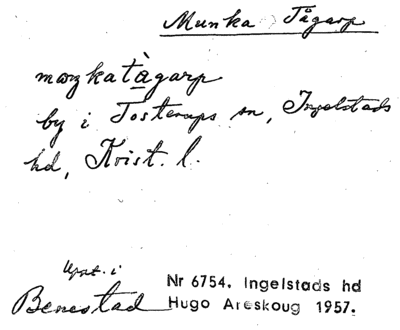 Munka Tågarp
maŋkatàgarp
by i Tosterups sn, Ingelstads
hd, Krist. l.
Uppt. i
Benestad
Nr 6754. Ingelstads hd
Hugo Areskoug 1957.